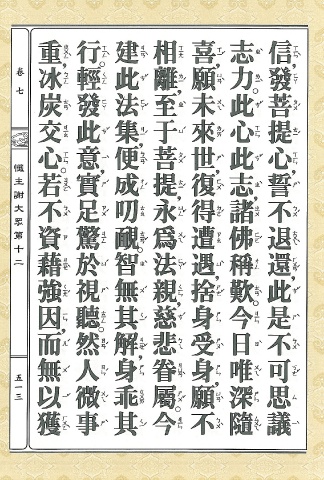 信，發菩提心，誓不退還，此是不可思議
志力。此心此志，諸佛稱歎。今日唯深隨
喜，願未來世，復得遭遇，捨身受身，願不
相離，至于菩提，永為法親，慈悲眷屬。今
建此法集，便成叨覥，智無其解，身乖其
行。輕發此意，實足驚於視聽。然人微事
重，冰炭交心。若不資藉強因，而無以獲
卷七
懺主謝大眾第十二
五一三